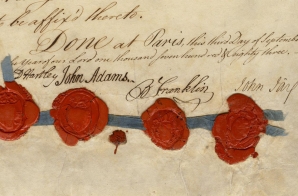 to be affix'd thereto.
Done at Paris, this third Day of September
of our Lord one thousand seven hundred & eighty three.
D Hartley John Adams. B Franklin John Jay